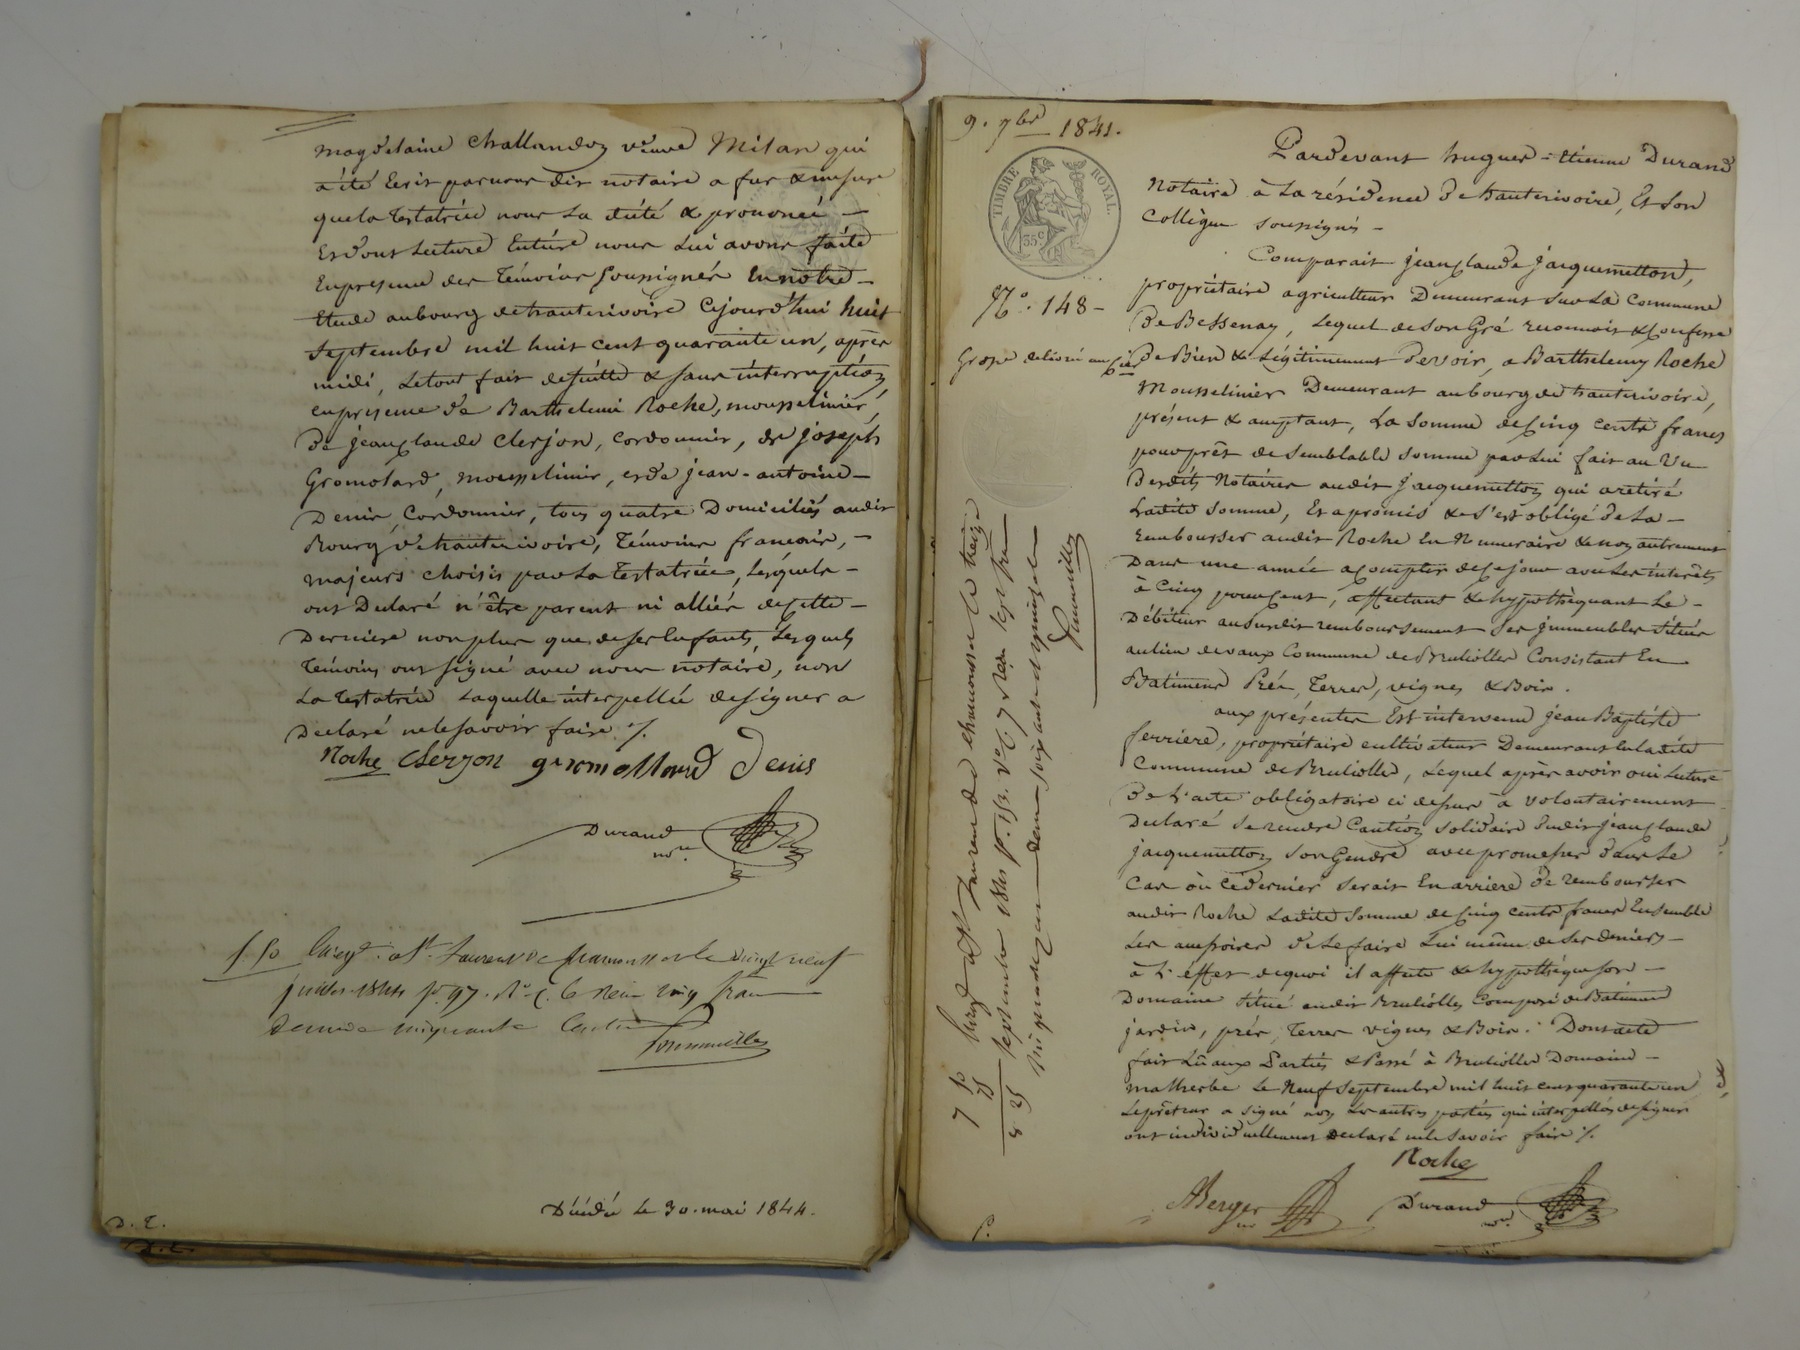 magdelaine challandon veuve Milan qui
a été Ecrit par nous dit notaire a fur & mesure
que la Testatrice nous la dicté & prononcé —
Et dont Lecture Entiere nous Lui avons faite
En presence des Témoins soussignés En notre —
Etude au bourg de hauterivoire Cejourd'hui huit
septembre mil huit cent quarante un, après
midi, Le tout fait de suitte & sans interruption,
en présence de Barthelemi Roche, mousselinier,
de jean Claude Clerjon, Cordonnier, de joseph
Gromolard, mousselinier, et de jean-antoine —
Denis, Cordonnier, tous quatre Domiciliés audit
Bourg d'hauterivoire, Témoins francais, —
majeurs choisis par La Testatrice, Lesquels —
ont Declaré n'être parents ni alliés de cette —
Derniere non plus que de ses Enfants, Lesquels
Témoins ont signé avec nous notaire, non
La Testatrice Laquelle interpellée de signer a
Declaré ne le savoir faire ./.
Roche Clerjon gromollard Denis
Durand
nre
5 50 Enregt. à St. Laurent de Chamousset le vingt neuf
juillet 1844 fo. 97. Ro. C. 6 Reçu cinq francs
Decime cinquante Centimes
Décédée le 30. mai 1844.
D. T.
9. 7bre 1841.
TIMBRE ROYAL.
35 c
No. 148 —
Grosse délivrée au Cier
7 50
75
8 25
Enregt. à St Laurent de Chamousset le treize
septembre 1841 fo. 13. Vo C. 7 Reçu sept frs
cinquante Decime soixante quinze Ces
Pardevant hugues = Etienne Durand
Notaire à La résidence de hauterivoire, Et son
Collègue soussignés —
Comparait jean Claude jacquemetton,
propriétaire agriculteur Demeurant sur La Commune
De Bessenay, Lequel de son Gré reconnait & Confesse
De Bien & Légitimement Devoir, a Barthelemy Roche
Mousselinier Demeurant au bourg de hauterivoire,
présent & acceptant, La somme de Cinq cents francs
pour prêt de semblable somme par Lui fait au Vu
Desdits Notaires audit jacquemetton qui a retiré
Ladite somme, Et a promis & s'est obligé de La —
rembourser audit Roche En Numeraire & non autrement
Dans une année a compter de ce jour avec Les interêts
à Cinq pour cent, affectant & hypothèquant Le —
Débiteur au susdit remboursement Ses jmmeubles situés
au lieu de vaux Commune de Brullioles Consistant En
Batiments Prés, Terres, vignes & Bois.
aux présentes Est intervenu jean Baptiste
ferriere, propriétaire cultivateur Demeurant En ladite
Commune de Brulliolles, Lequel après avoir oui Lecture
De L'acte obligatoire ci dessus à volontairement
Declaré se rendre Caution solidaire Dudit jean Claude
jacquemetton son Gendre avec promesses dans Le
Cas où Ce dernier serait En arriere de rembourser
audit Roche Ladite Somme de Cinq cents francs Ensemble
Les accessoires de Le faire Lui même de ses deniers —
à L'effet de quoi il affecte & hypothéque son —
Domaine situé audit Brulliolles Composé de Batiments
jardin, prés, Terres vignes & Bois. Dont acte
fait Lu aux Parties & Passé à Brullioles Domaine —
malherbe Le Neuf septembre mil huit cent quarante un
Le prêteur a signé non Les autres parties qui interpellés de signer
ont individuellement declaré ne le savoir faire ./.
Roche
Berger
nre
Durand
nre